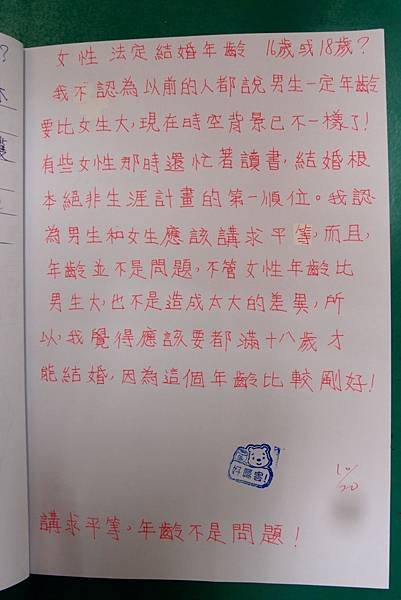 女性 法定結婚年齡 16歲或18歲？
我不認為以前的人都說男生一定年齡
要比女生大，現在時空背景已不一樣了！
有些女性那時還忙著讀書，結婚根
本絕非生涯計畫的第一順位。我認
為男生和女生應該講求平等，而且，
年齡並不是問題，不管女性年齡比
男生大，也不是造成太大的差異，所
以，我覺得應該要都滿十八歲才
能結婚，因為這個年齡比較剛好！
10/20
講求平等，年齡不是問題！